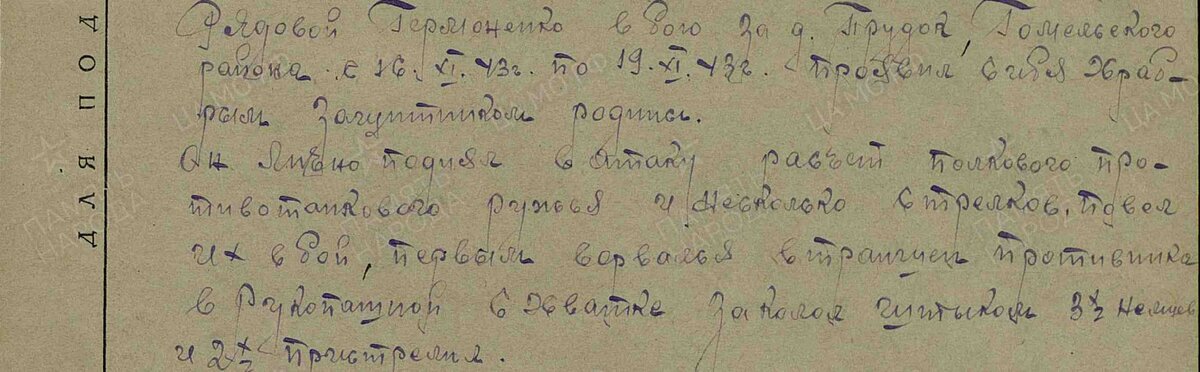 Рядовой Гермоненко в бою за д. Прудок, Гомельского
района с 16. XI. 43г. по 19. XI. 43г. проявил себя храб-
рым защитником родины.
Он лично поднял в атаку расчет полкового про-
тивотанкового ружья и несколько стрелков, повел
их в бой, первым ворвался в траншеи противника
в рукопашной схватке заколол штыком 3х немцев
и 2х пристрелил.
ДЛЯ ПОД